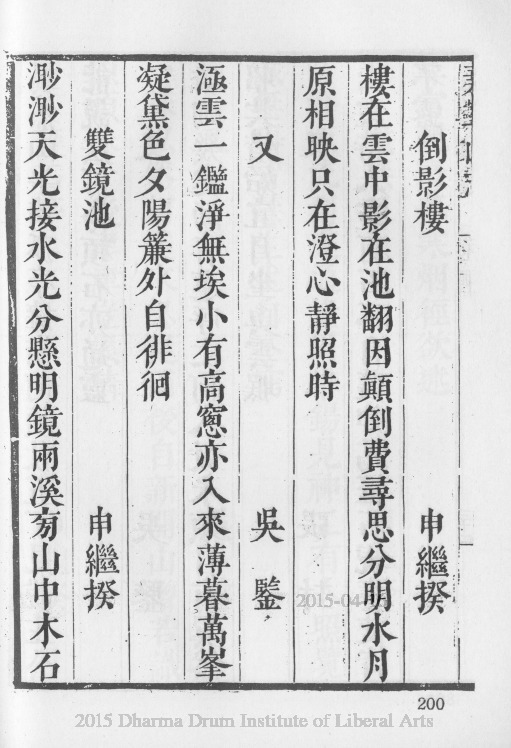 倒影樓　申繼揆
樓在雲中影在池翻因顛倒費尋思分明水月
原相映只在澄心靜照時
又　吳鑒
極雲一鑑淨無埃小有高窓亦入來薄暮萬峯
凝黛色夕陽簾外自徘徊
雙鏡池　申繼揆
渺渺天光接水光分懸明鏡兩溪旁山中木石
200
2015 Dharma Drum Institute of Liberal Arts